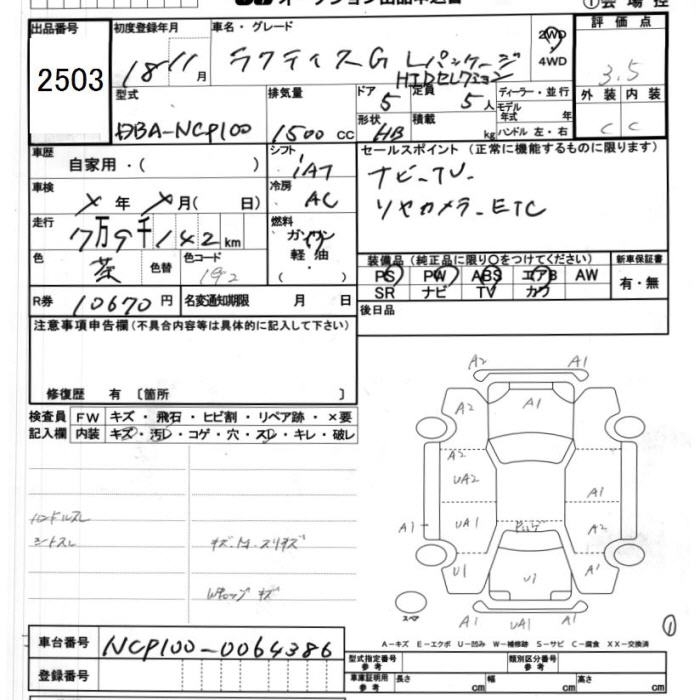 オークション出品申込書
①会場控
出品番号 初度登録年月 車名・グレード 評価点
2503 18 11月 ラクティスG Lパッケージ 2WD 3.5
HIDセレクション 4WD
型式 排気量 ドア 定員 ディーラー・並行 外装 内装
DBA-NCP100 1500cc 5 5人 モデル年式 年 C C
形状 HB 積載 kg ハンドル 左・右
車歴 自家用・( ) シフト IAT セールスポイント (正常に機能するものに限ります)
車検 × 年 × 月( 日) 冷房 AC ナビ-TV-
リヤカメラ-ETC
走行 7万9千142km 燃料 ガソリン
軽油・
( )
色 茶 色替 色コード 192
装備品(純正品に限り〇をつけてください) 新車保証書
PS PW ABS エアB AW 有・無
SR ナビ TV カワ
R券 10670円 名変通知期限 月 日 後日品
注意事項申告欄(不具合内容等は具体的に記入して下さい)
修復歴 有 〔箇所 〕
検査員 FW キズ・飛石・ヒビ割・リペア跡・×要
記入欄 内装 キズ・汚レ・コゲ・穴・スレ・キレ・破レ
ハンドルスレ
シートスレ
A2 A1
A2 A1
A2
UA2 A1
A1 UA1 A2
U1 U1 A1
スペア A1 UA1 A1
①
A-キズ E-エクボ U-凹み W-補修跡 S-サビ C-腐食 XX-交換済
車台番号 NCP100-0064386
登録番号
型式指定番号 参考 類別区分番号 参考
車庫証明用 参考 長さ cm 幅 cm 高さ cm